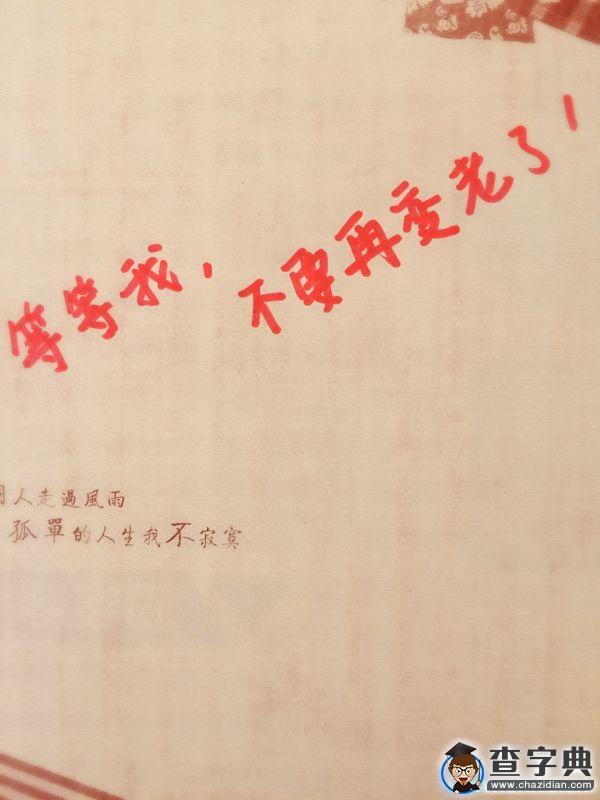 等等我，不要再变老了！
人走過風雨
孤單的人生我不寂寞
查字典
www.chazidian.com